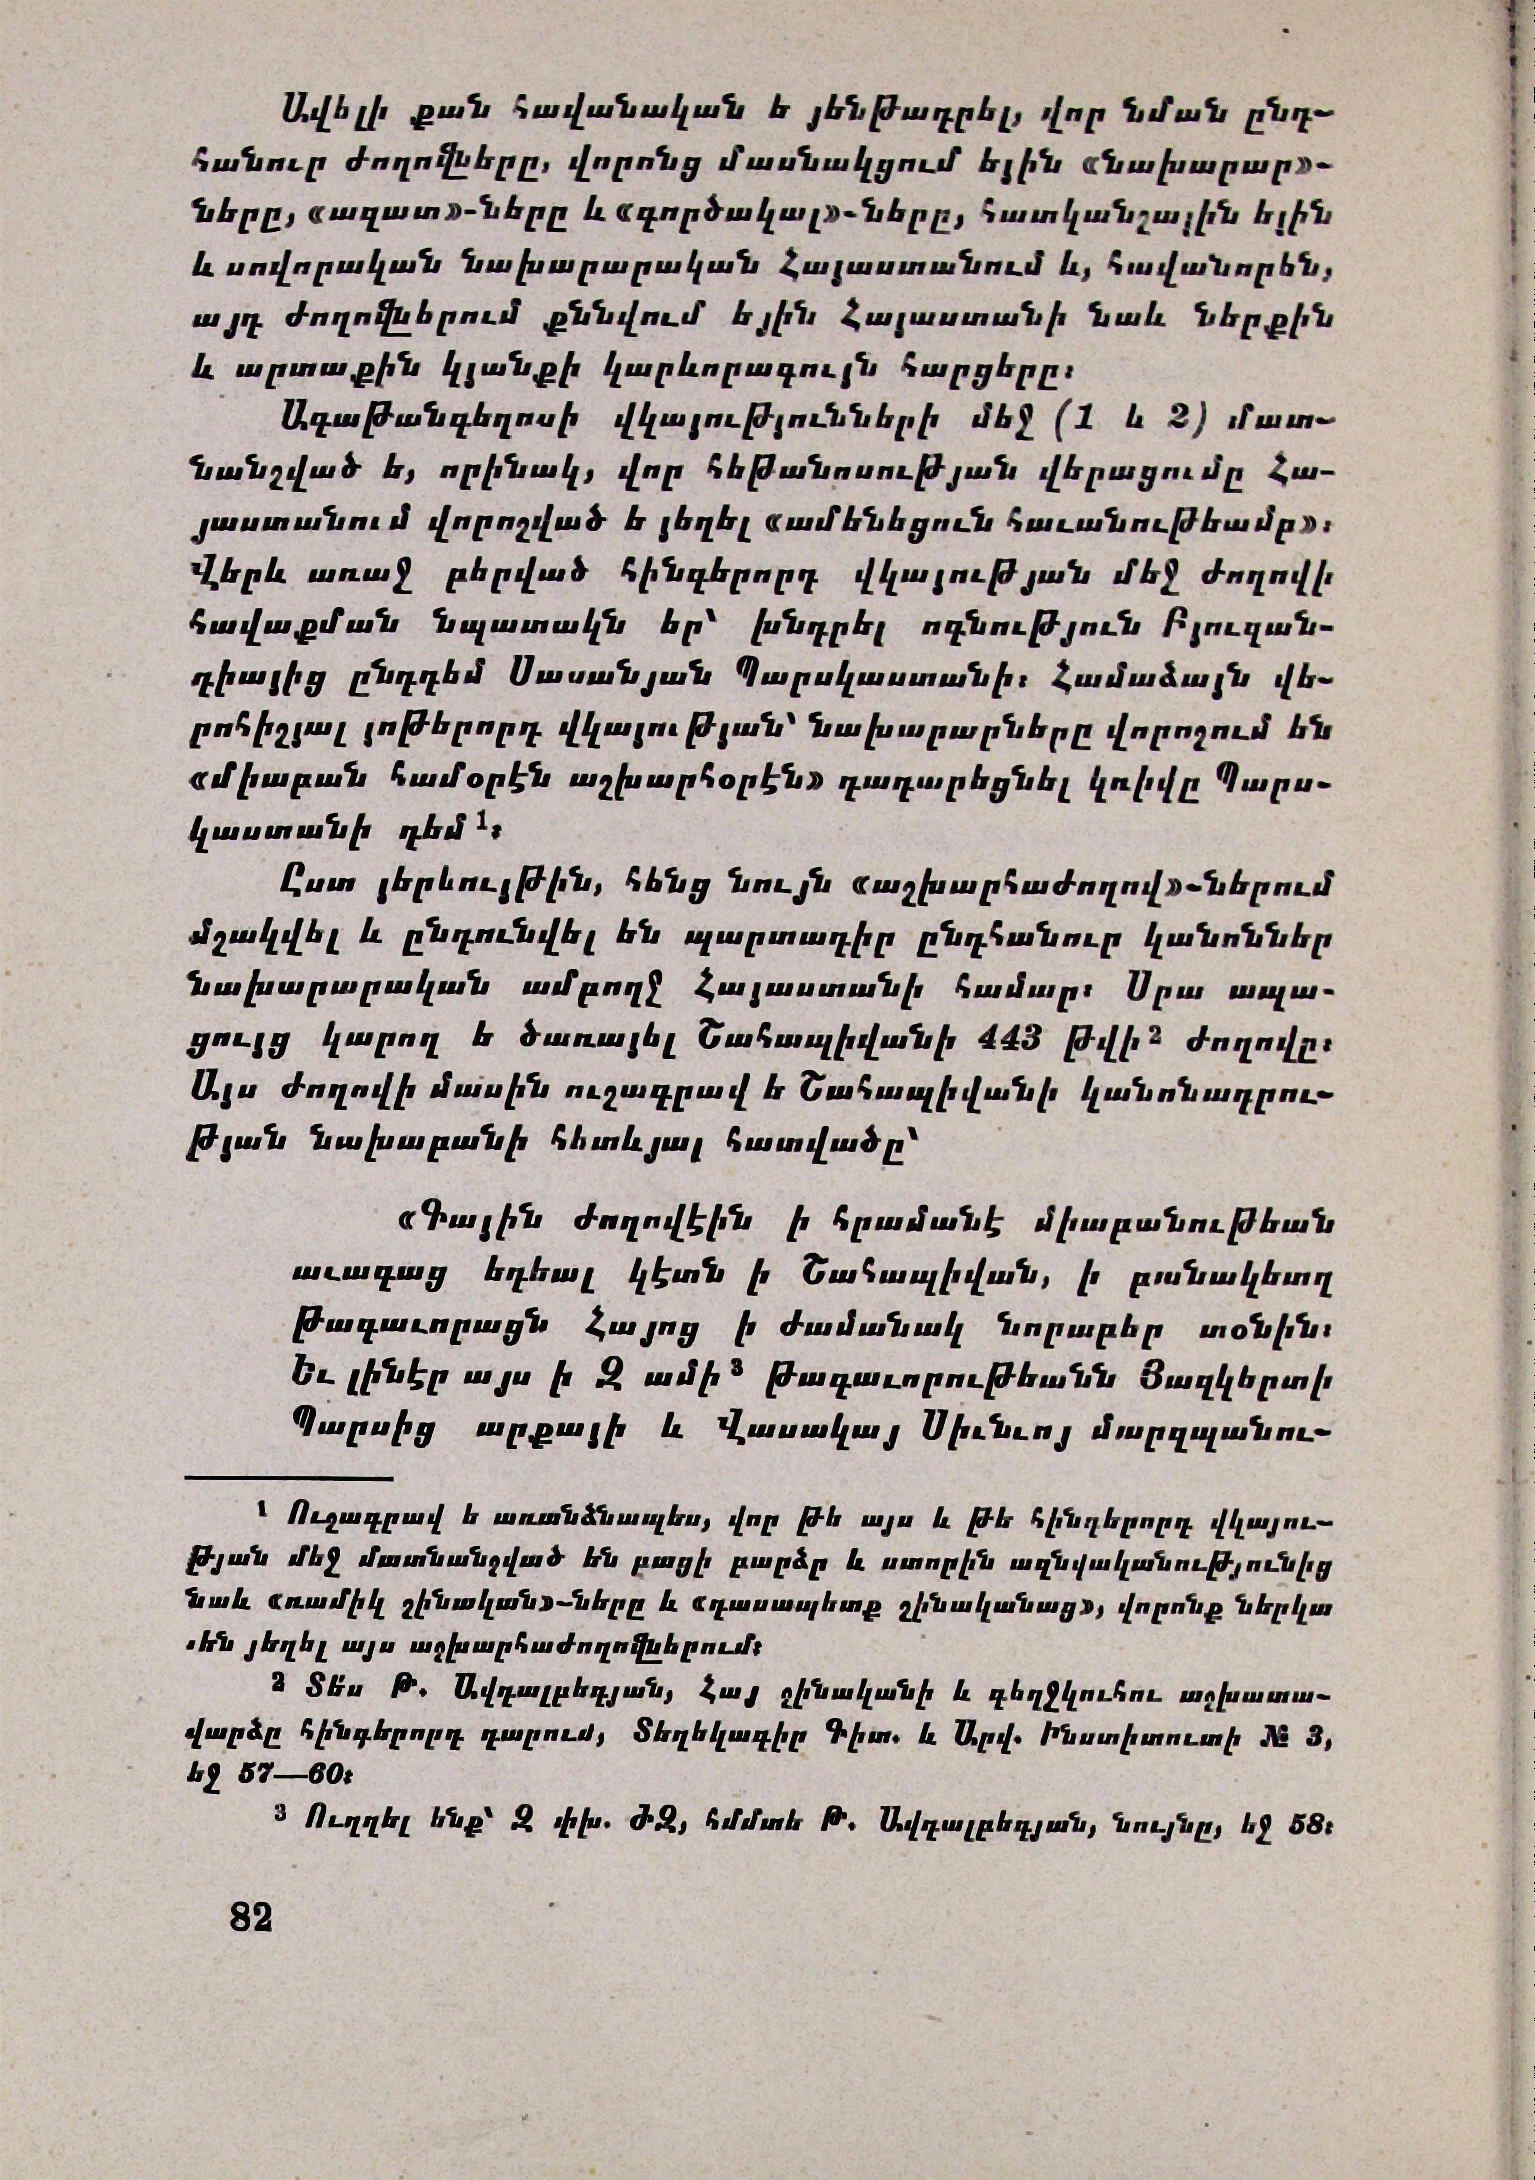 Ավելի քան հավանական ե յենթադրել, վոր նման ընդ-
հանուր ժողովները, վորոնց մասնակցում եյին «նախարար»-
ները, «ազատ»-ները և «գործակալ»-ները, հատկանշային եյին
և սովորական նախարարական Հայաստանում և, հավանորեն,
այդ ժողովներում քննվում եյին Հայաստանի նաև ներքին
և արտաքին կյանքի կարևորագույն հարցերը։
Ագաթանգեղոսի վկայությունների մեջ (1 և 2) մատ-
նանշված ե, որինակ, վոր հեթանոսության վերացումը Հա-
յաստանում վորոշված ե յեղել «ամենեցուն հաւանութեամբ»։
Վերև առաջ բերված հինգերորդ վկայության մեջ ժողովի
հավաքման նպատակն եր՝ խնդրել ոգնություն Բյուզան-
դիայից ընդդեմ Սասանյան Պարսկաստանի։ Համաձայն վե-
րոհիշյալ յոթերորդ վկայության՝ նախարարները վորոշում են
«միաբան համօրէն աշխարհօրէն» դադարեցնել կռիվը Պարս-
կաստանի դեմ¹։
Ըստ յերևույթին, հենց նույն «աշխարհաժողով»-ներում
մշակվել և ընդունվել են պարտադիր ընդհանուր կանոններ
նախարարական ամբողջ Հայաստանի համար։ Սրա ապա-
ցույց կարող ե ծառայել Շահապիվանի 443 թվի² ժողովը։
Այս ժողովի մասին ուշագրավ ե Շահապիվանի կանոնադրու-
թյան նախաբանի հետևյալ հատվածը՝
«Գային ժողովէին ի հրամանէ միաբանութեան
աւագաց եդեալ կէտն ի Շահապիվան, ի բանակետղ
թագաւորացն Հայոց ի ժամանակ նորաբեր տօնին։
Եւ լինէր այս ի Զ ամի³ թագաւորութեանն Յազկերտի
Պարսից արքայի և Վասակայ Սիւնւոյ մարզպանու-
¹ Ուշագրավ ե առանձնապես, վոր թե այս և թե հինգերորդ վկայու-
թյան մեջ մատնանշված են բացի բարձր և ստորին ազնվականությունից
նաև «ռամիկ շինական»-ները և «դասապետք շինականաց», վորոնք ներկա
են յեղել այս աշխարհաժողովներում։
² Տե՛ս Թ. Ավդալբեգյան, Հայ շինականի և գեղջկուհու աշխատա-
վարձը հինգերորդ դարում, Տեղեկագիր Գիտ. և Արվ. Ինստիտուտի № 3,
եջ 57—60։
³ Ուղղել ենք՝ Զ փխ. ԺԶ, հմմտե Թ. Ավդալբեգյան, նույնը, եջ 58։
82